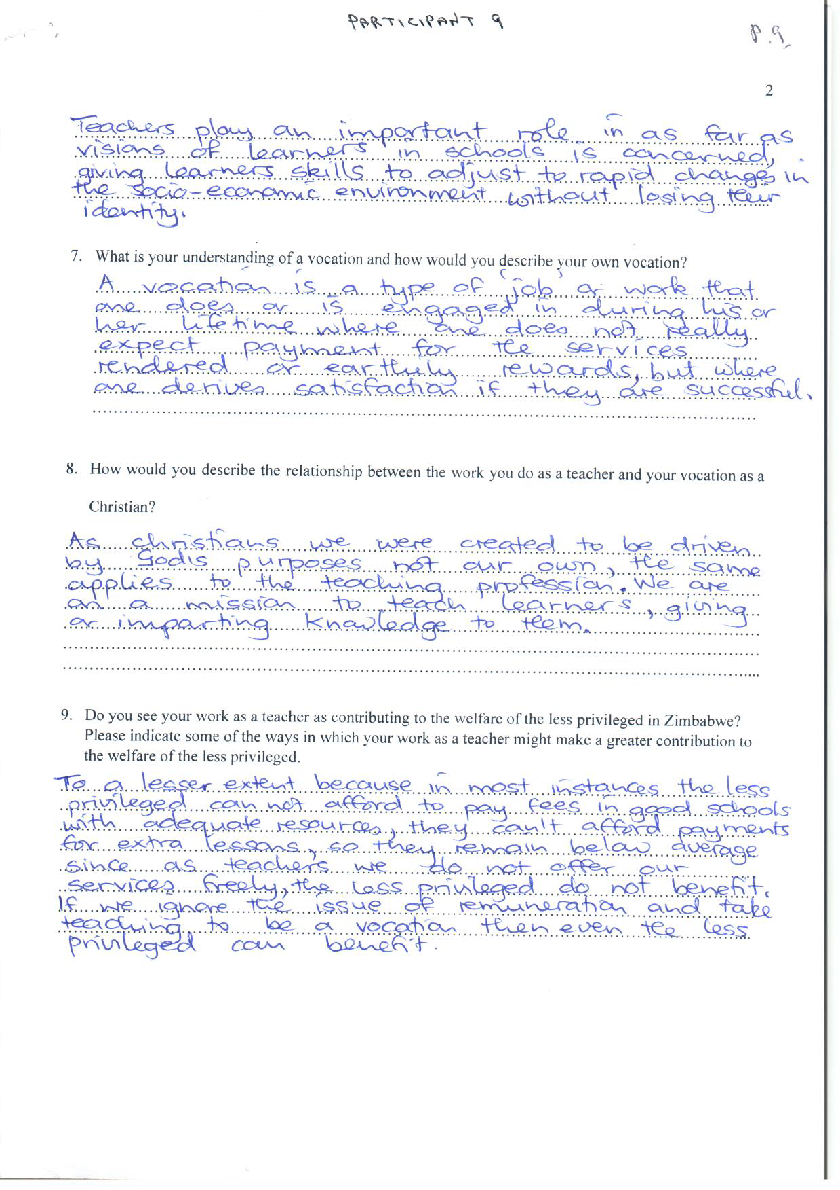 PARTICIPANT 9
P.9
2
Teachers play an important role in as far as
visions of learners in schools is concerned,
giving learners skills to adjust to rapid changes in
the socio-economic environment without losing their
identity.
7. What is your understanding of a vocation and how would you describe your own vocation?
A vocation is a type of job or work that
one does or is engaged in during his or
her lifetime where one does not really
expect payment for the services
rendered or earthly rewards, but where
one derives satisfaction if they are successful.
8. How would you describe the relationship between the work you do as a teacher and your vocation as a
Christian?
As christians we were created to be driven
by God's purposes not our own, the same
applies to the teaching profession. We are
on a mission to teach learners, giving
or imparting knowledge to them.
9. Do you see your work as a teacher as contributing to the welfare of the less privileged in Zimbabwe?
Please indicate some of the ways in which your work as a teacher might make a greater contribution to
the welfare of the less privileged.
To a lesser extent because in most instances the less
privileged can not afford to pay fees in good schools
with adequate resources, they can't afford payments
for extra lessons, so they remain below average
since as teachers we do not offer our
services freely, the less privileged do not benefit.
If we ignore the issue of remuneration and take
teaching to be a vocation then even the less
privileged can benefit.